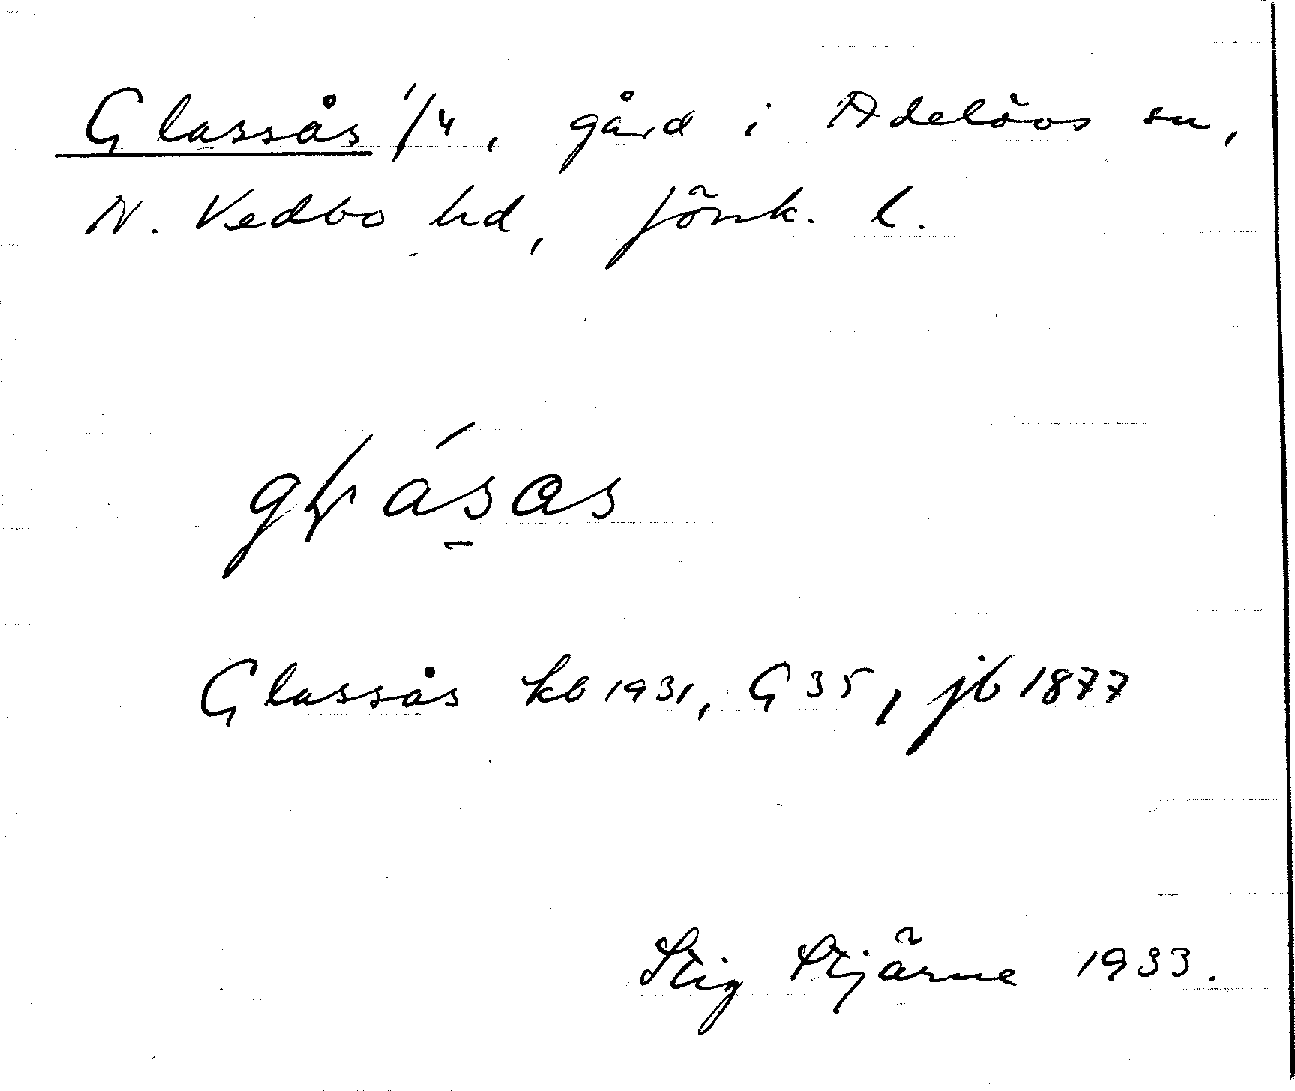 Glassås 1/4, gård i Adelövs sn,
N. Vedbo hd, Jönk. l.
Glassås kb 1931, G 35, jb 1877
Stig Stjärne 1933.